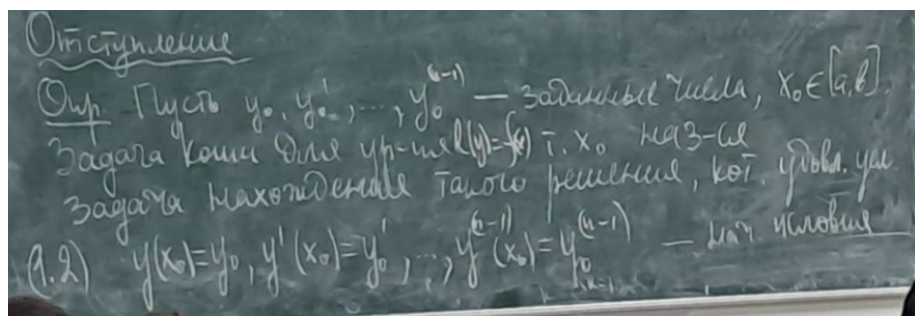 Отступление
Опр. Пусть y₀, y₀', ..., y₀⁽ⁿ⁻¹⁾ — заданные числа, x₀ ∈ [a,b].
Задача Коши для ур-ия l(y)=f(x) т. x₀ наз-ся
задача нахождения такого решения, кот. удовл. усл.
(1.2) y(x₀)=y₀, y'(x₀)=y₀', ..., y⁽ⁿ⁻¹⁾(x₀)=y₀⁽ⁿ⁻¹⁾ — нач. условия